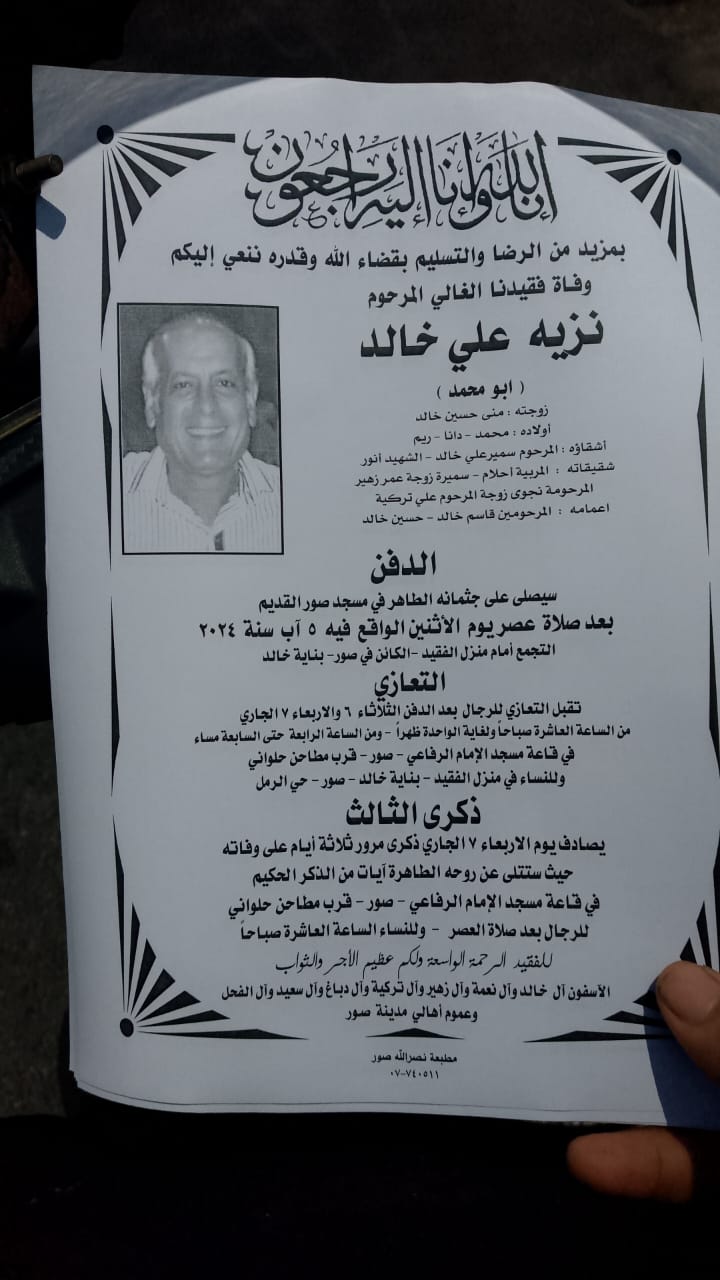 إنا لله وإنا إليه راجعون
بمزيد من الرضا والتسليم بقضاء الله وقدره ننعي إليكم
وفاة فقيدنا الغالي المرحوم
نزيه علي خالد
( ابو محمد )
زوجته : منى حسين خالد
أولاده : محمد - دانا - ريم
أشقاؤه : المرحوم سمير علي خالد - الشهيد أنور
شقيقاته : المربية أحلام - سميرة زوجة عمر زهير
المرحومة نجوى زوجة المرحوم علي تركية
اعمامه : المرحومين قاسم خالد - حسين خالد
الدفن
سيصلى على جثمانه الطاهر في مسجد صور القديم
بعد صلاة عصر يوم الأثنين الواقع فيه ٥ آب سنة ٢٠٢٤
التجمع أمام منزل الفقيد - الكائن في صور - بناية خالد
التعازي
تقبل التعازي للرجال بعد الدفن الثلاثاء ٦ والاربعاء ٧ الجاري
من الساعة العاشرة صباحاً ولغاية الواحدة ظهراً - ومن الساعة الرابعة حتى السابعة مساء
في قاعة مسجد الإمام الرفاعي - صور - قرب مطاحن حلواني
وللنساء في منزل الفقيد - بناية خالد - صور - حي الرمل
ذكرى الثالث
يصادف يوم الاربعاء ٧ الجاري ذكرى مرور ثلاثة أيام على وفاته
حيث ستتلى عن روحه الطاهرة آيات من الذكر الحكيم
في قاعة مسجد الإمام الرفاعي - صور - قرب مطاحن حلواني
للرجال بعد صلاة العصر - وللنساء الساعة العاشرة صباحاً
للفقيد الرحمة الواسعة ولكم عظيم الأجر والثواب
الآسفون آل خالد وآل نعمة وآل زهير وآل تركية وآل دباغ وآل سعيد وآل الفحل
وعموم أهالي مدينة صور
مطبعة نصرالله صور
٠٧-٧٤٠٥١١